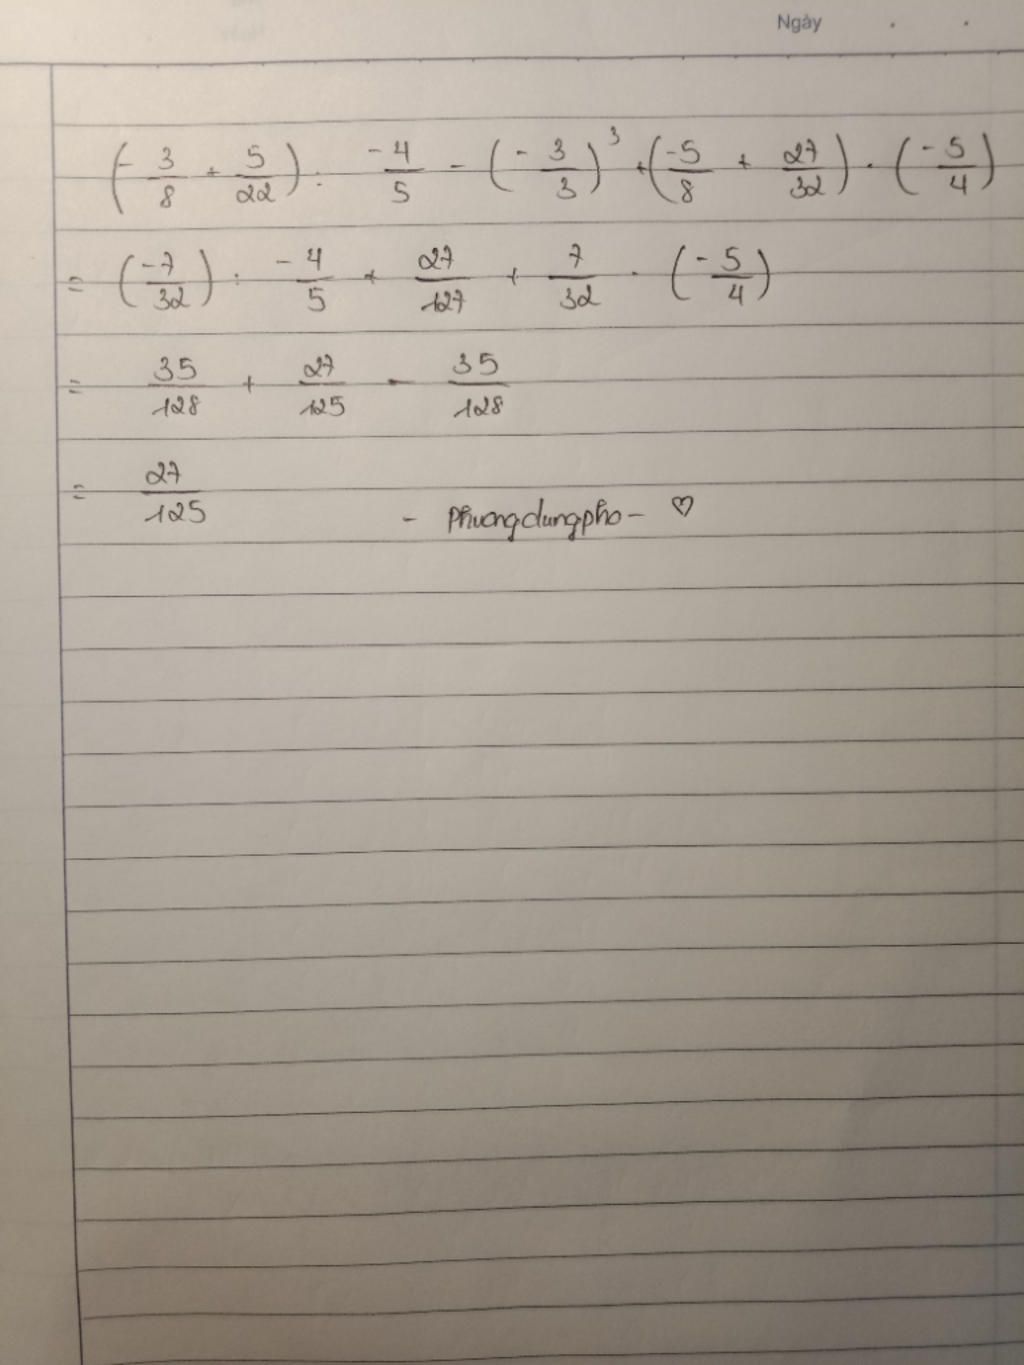 Ngày . .
(- 3/8 + 5/22) : -4/5 - (- 3/3)³ + (-5/8 + 27/32) . (-5/4)
= (-7/32) : -4/5 + 27/127 + 7/32 . (-5/4)
= 35/128 + 27/125 - 35/128
= 27/125
- Phuongdungpho - ♡